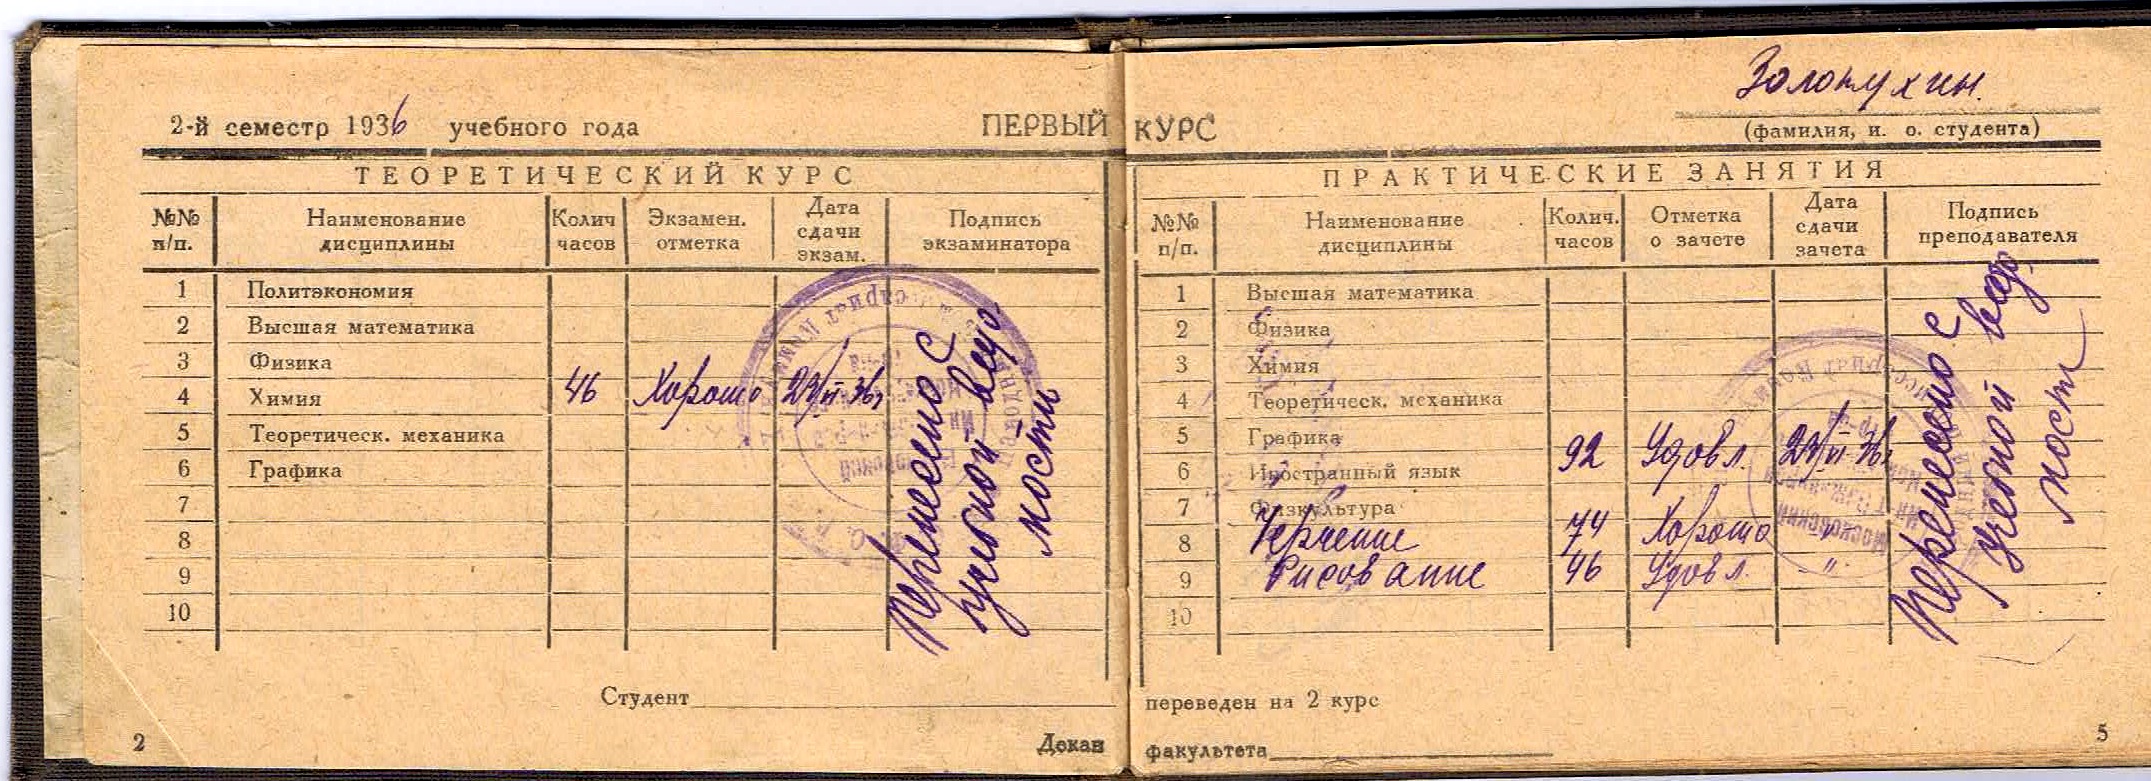 Золотухин.
2-й семестр 1936 учебного года ПЕРВЫЙ КУРС
(фамилия, и. о. студента)
ТЕОРЕТИЧЕСКИЙ КУРС
№№ п/п.
Наименование дисциплины
Колич часов
Экзамен. отметка
Дата сдачи экзам.
Подпись экзаминатора
1 Политэкономия
2 Высшая математика
3 Физика
4 Химия 46 Хорошо 23/VI-36г
5 Теоретическ. механика
6 Графика
7
8
9
10
Перенесено с
учетной ведо
мости
Студент
2
Декан
ПРАКТИЧЕСКИЕ ЗАНЯТИЯ
№№ п/п.
Наименование дисциплины
Колич. часов
Отметка о зачете
Дата сдачи зачета
Подпись преподавателя
1 Высшая математика
2 Физика
3 Химия
4 Теоретическ. механика
5 Графика
6 Иностранный язык 92 Удовл. 23/VI-36г
7 Физкультура
8 Черчение 74 Хорошо "
9 Рисование 46 Удовл. - " -
10
Перенесено с
учетной ведо
мости
переведен на 2 курс
факультета
5